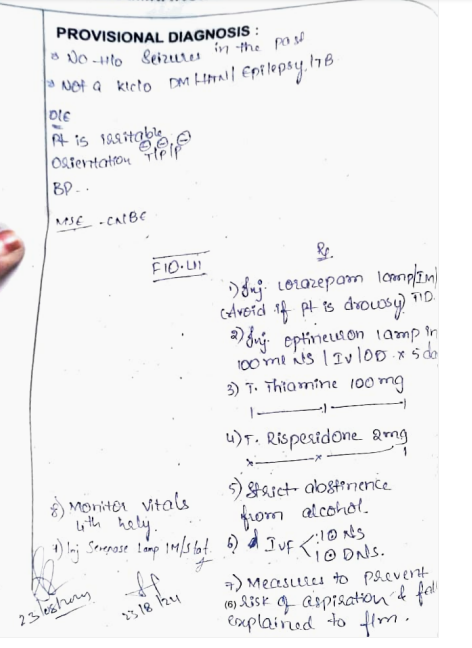 PROVISIONAL DIAGNOSIS :
No H/o Seizures in the past
Not a k/c/o DM | HTN | Epilepsy | TB
O/E
Pt is irritable
Orientation T|P|P
BP - .
MSE - CNBE
F10.
Rx
1) Inj. Lorazepam 1amp/IM/
(Avoid if Pt is drowsy) TID.
2) Inj. optineuron 1 amp in
100 ml NS | IV | OD x 5 da
3) T. Thiamine 100 mg
1 — 1 — 1
4) T. Risperidone 2mg
x — x — 1
5) Strict abstinence
from alcohol.
6) IVF < 1 @ NS
1 @ DNS.
7) Measures to prevent
risk of aspiration & fall
explained to
8) Monitor vitals
4th hrly.
9) Inj Serenace 1amp IM/Stat.
23/8/24